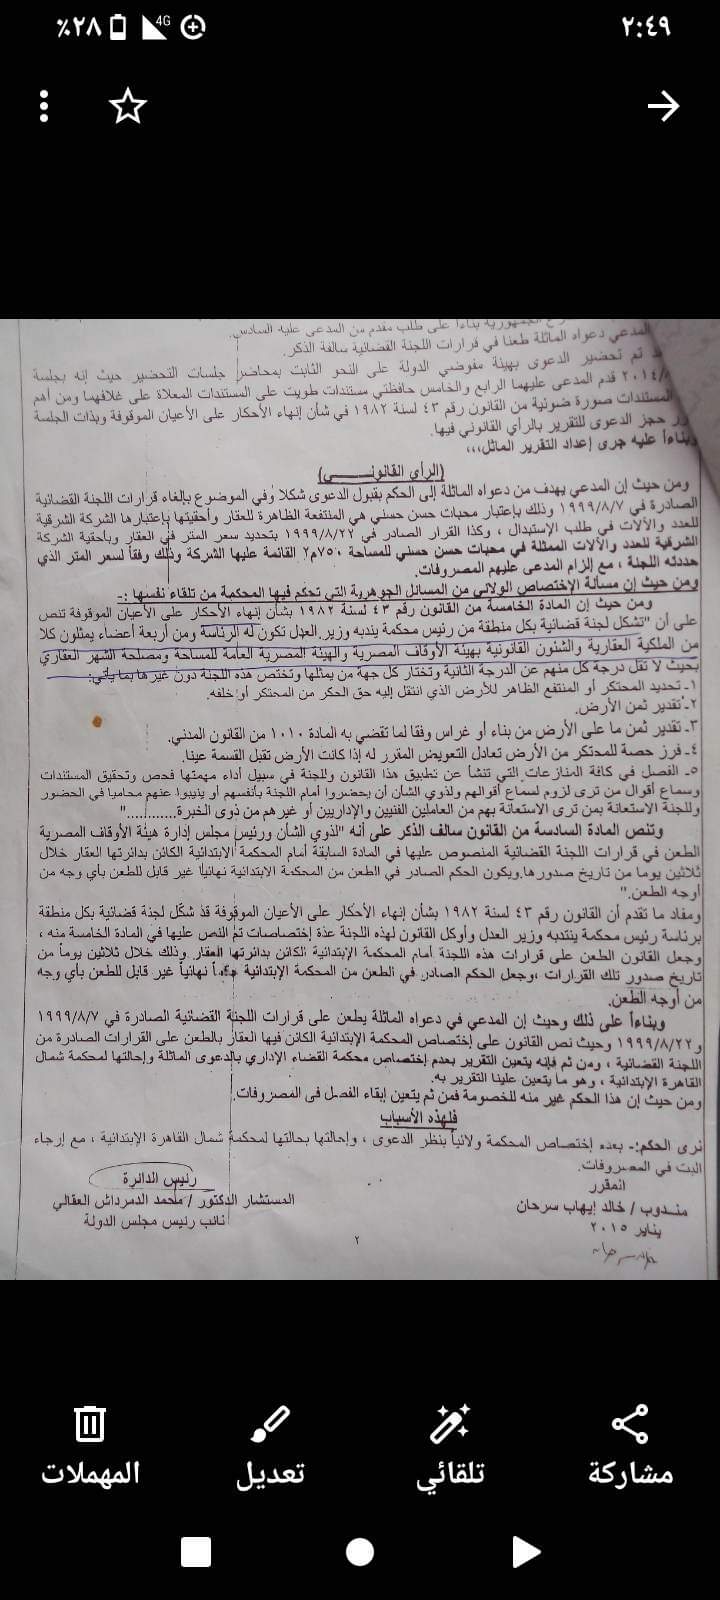 ٢:٤٩
4G
٪٢٨
رع الجمهورية بناءا على طلب مقدم من المدعى عليه السادس.
المدعي دعواه الماثلة طعنا في قرارات اللجنة القضائية سالفة الذكر.
تم تحضير الدعوى بهيئة مفوضي الدولة على النحو الثابت بمحاضر جلسات التحضير حيث إنه بجلسة
٢٠١٤ قدم المدعى عليهما الرابع والخامس حافظتي مستندات طويت على المستندات المعلاة على غلافهما ومن أهم
المستندات صورة ضوئية من القانون رقم ٤٣ لسنة ١٩٨٢ في شأن إنهاء الأحكار على الأعيان الموقوفة وبذات الجلسة
حجز الدعوى للتقرير بالرأي القانوني فيها.
وبناءاً عليه جرى إعداد التقرير الماثل،،،
(الرأي القانونـــــي)
ومن حيث إن المدعي يهدف من دعواه الماثلة إلى الحكم بقبول الدعوى شكلا وفي الموضوع بإلغاء قرارات اللجنة القضائية
الصادرة في ١٩٩٩/٨/٧ وذلك بإعتبار محبات حسن حسني هي المنتفعة الظاهرة للعقار وأحقيتها بإعتبارها الشركة الشرقية
للعدد والآلات في طلب الإستبدال ، وكذا القرار الصادر في ١٩٩٩/٨/٢٢ بتحديد سعر المتر في العقار وبأحقية الشركة
الشرقية للعدد والآلات الممثلة في محبات حسن حسني للمساحة ٧٥٠م٢ القائمة عليها الشركة وذلك وفقاً لسعر المتر الذي
حددته اللجنة ، مع إلزام المدعى عليهم المصروفات.
ومن حيث إن مسألة الإختصاص الولائي من المسائل الجوهرية التي تحكم فيها المحكمة من تلقاء نفسها :-
ومن حيث إن المادة الخامسة من القانون رقم ٤٣ لسنة ١٩٨٢ بشأن إنهاء الأحكار على الأعيان الموقوفة تنص
على أن "تشكل لجنة قضائية بكل منطقة من رئيس محكمة يندبه وزير العدل تكون له الرئاسة ومن أربعة أعضاء يمثلون كلا
من الملكية العقارية والشئون القانونية بهيئة الأوقاف المصرية والهيئة المصرية العامة للمساحة ومصلحة الشهر العقاري
بحيث لا تقل درجة كل منهم عن الدرجة الثانية وتختار كل جهة من يمثلها وتختص هذه اللجنة دون غيرها بما يأتي:
١- تحديد المحتكر أو المنتفع الظاهر للأرض الذي انتقل إليه حق الحكر من المحتكر أو خلفه.
٢- تقدير ثمن الأرض.
٣- تقدير ثمن ما على الأرض من بناء أو غراس وفقا لما تقضي به المادة ١٠١٠ من القانون المدني.
٤- فرز حصة للمحتكر من الأرض تعادل التعويض المقرر له إذا كانت الأرض تقبل القسمة عينا.
٥- الفصل في كافة المنازعات التي تنشأ عن تطبيق هذا القانون وللجنة في سبيل أداء مهمتها فحص وتحقيق المستندات
وسماع أقوال من ترى لزوم لسماع أقوالهم ولذوي الشأن أن يحضروا أمام اللجنة بأنفسهم أو ينيبوا عنهم محاميا في الحضور
وللجنة الاستعانة بمن ترى الاستعانة بهم من العاملين الفنيين والإداريين أو غيرهم من ذوى الخبرة............"
وتنص المادة السادسة من القانون سالف الذكر على أنه "لذوي الشأن ورئيس مجلس إدارة هيئة الأوقاف المصرية
الطعن في قرارات اللجنة القضائية المنصوص عليها في المادة السابقة أمام المحكمة الابتدائية الكائن بدائرتها العقار خلال
ثلاثين يوما من تاريخ صدورها.ويكون الحكم الصادر في الطعن من المحكمة الابتدائية نهائياً غير قابل للطعن بأي وجه من
أوجه الطعن."
ومفاد ما تقدم أن القانون رقم ٤٣ لسنة ١٩٨٢ بشأن إنهاء الأحكار على الأعيان الموقوفة قد شكل لجنة قضائية بكل منطقة
برئاسة رئيس محكمة ينتدبه وزير العدل وأوكل القانون لهذه اللجنة عدة إختصاصات تم النص عليها في المادة الخامسة منه ،
وجعل القانون الطعن على قرارات هذه اللجنة أمام المحكمة الإبتدائية الكائن بدائرتها العقار وذلك خلال ثلاثين يوماً من
تاريخ صدور تلك القرارات ،وجعل الحكم الصادر في الطعن من المحكمة الإبتدائية نهائياً غير قابل للطعن بأي وجه
من أوجه الطعن.
وبناءاً على ذلك وحيث إن المدعي في دعواه الماثلة يطعن على قرارات اللجنة القضائية الصادرة في ١٩٩٩/٨/٧
و١٩٩٩/٨/٢٢ وحيث نص القانون على إختصاص المحكمة الإبتدائية الكائن فيها العقار بالطعن على القرارات الصادرة من
اللجنة القضائية ، ومن ثم فإنه يتعين التقرير بعدم إختصاص محكمة القضاء الإداري بالدعوى الماثلة وإحالتها لمحكمة شمال
القاهرة الإبتدائية ، وهو ما يتعين علينا التقرير به.
ومن حيث إن هذا الحكم غير منه للخصومة فمن ثم يتعين إبقاء الفصل فى المصروفات.
فلهذه الأسباب
نرى الحكم:- بعدم إختصاص المحكمة ولائياً بنظر الدعوى ، وإحالتها بحالتها لمحكمة شمال القاهرة الإبتدائية ، مع إرجاء
البت في المصروفات.
المقرر
رئيس الدائرة
مندوب / خالد إيهاب سرحان
المستشار الدكتور / محمد الدمرداش العقالي
يناير ٢٠١٥
نائب رئيس مجلس الدولة
٢
مشاركة
تلقائي
تعديل
المهملات